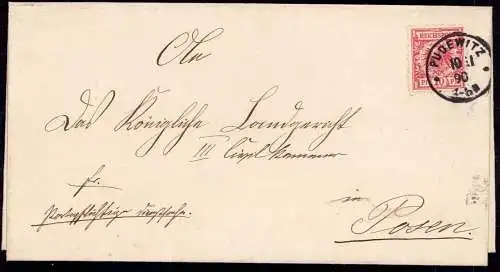 REICHSPOST
PUDEWITZ
10 11
90
An
Das Königliche Landgericht
III Civil Kammer
fr.
Portopflichtige
in
Posen.